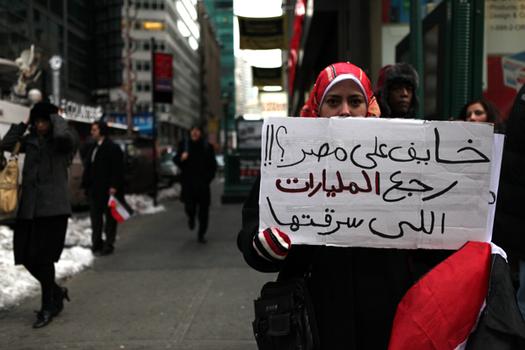 خايف على مصر ؟!!
رجع المليارات
اللى سرقتها